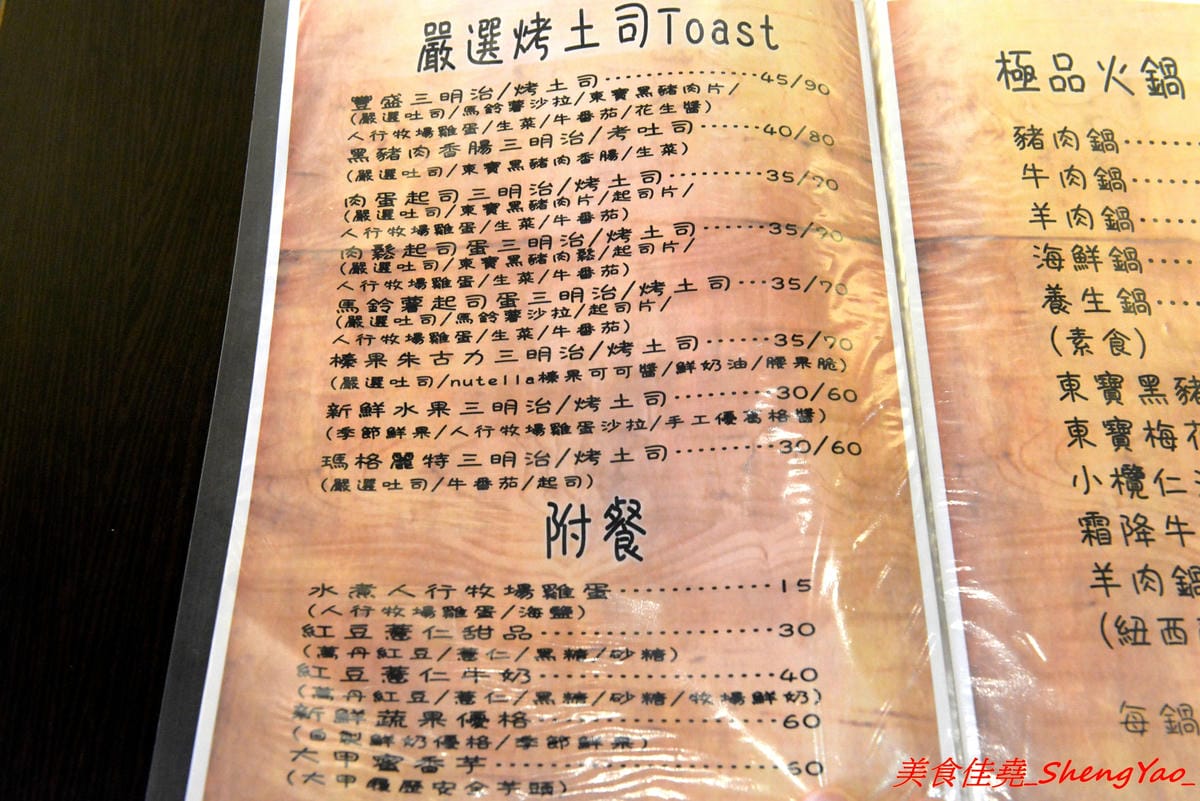 嚴選烤土司Toast
豐盛三明治/烤土司················45/90
(嚴選吐司/馬鈴薯沙拉/東寶黑豬肉片/
人行牧場雞蛋/生菜/牛番茄/花生醬)
黑豬肉香腸三明治/考吐司······40/80
(嚴選吐司/東寶黑豬肉香腸/生菜)
肉蛋起司三明治/烤土司·········35/70
(嚴選吐司/東寶黑豬肉片/起司片/
人行牧場雞蛋/生菜/牛番茄)
肉鬆起司蛋三明治/烤土司······35/70
(嚴選吐司/東寶黑豬肉鬆/起司片/
人行牧場雞蛋/生菜/牛番茄)
馬鈴薯起司蛋三明治/烤土司···35/70
(嚴選吐司/馬鈴薯沙拉/起司片/
人行牧場雞蛋/生菜/牛番茄)
榛果朱古力三明治/烤土司······35/70
(嚴選吐司/nutella榛果可可醬/鮮奶油/腰果脆)
新鮮水果三明治/烤土司·········30/60
(季節鮮果/人行牧場雞蛋沙拉/手工優格醬)
瑪格麗特三明治/烤土司·········30/60
(嚴選吐司/牛番茄/起司)
附餐
水煮人行牧場雞蛋···············15
(人行牧場雞蛋/海鹽)
紅豆薏仁甜品·····················30
(萬丹紅豆/薏仁/黑糖/砂糖)
紅豆薏仁牛奶·····················40
(萬丹紅豆/薏仁/黑糖/砂糖/牧場鮮奶)
新鮮蔬果優格·····················60
(自製鮮奶優格/季節鮮果)
大甲蜜香芋························60
(大甲履歷安全芋頭)
極品火鍋
豬肉鍋·······
牛肉鍋·······
羊肉鍋······
海鮮鍋·····
養生鍋····
(素食)
東寶黑豬
東寶梅花
小欖仁
霜降牛
羊肉鍋
(紐西
每鍋
美食佳堯_ShengYao_